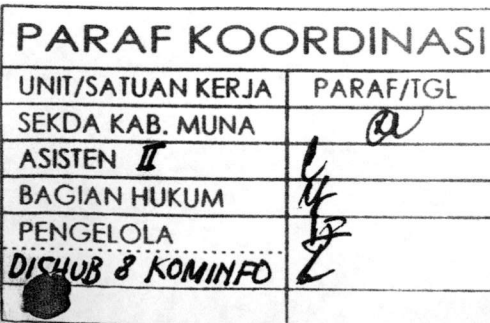 PARAF KOORDINASI
UNIT/SATUAN KERJA PARAF/TGL
SEKDA KAB. MUNA
ASISTEN II
BAGIAN HUKUM
PENGELOLA
DISHUB & KOMINFO